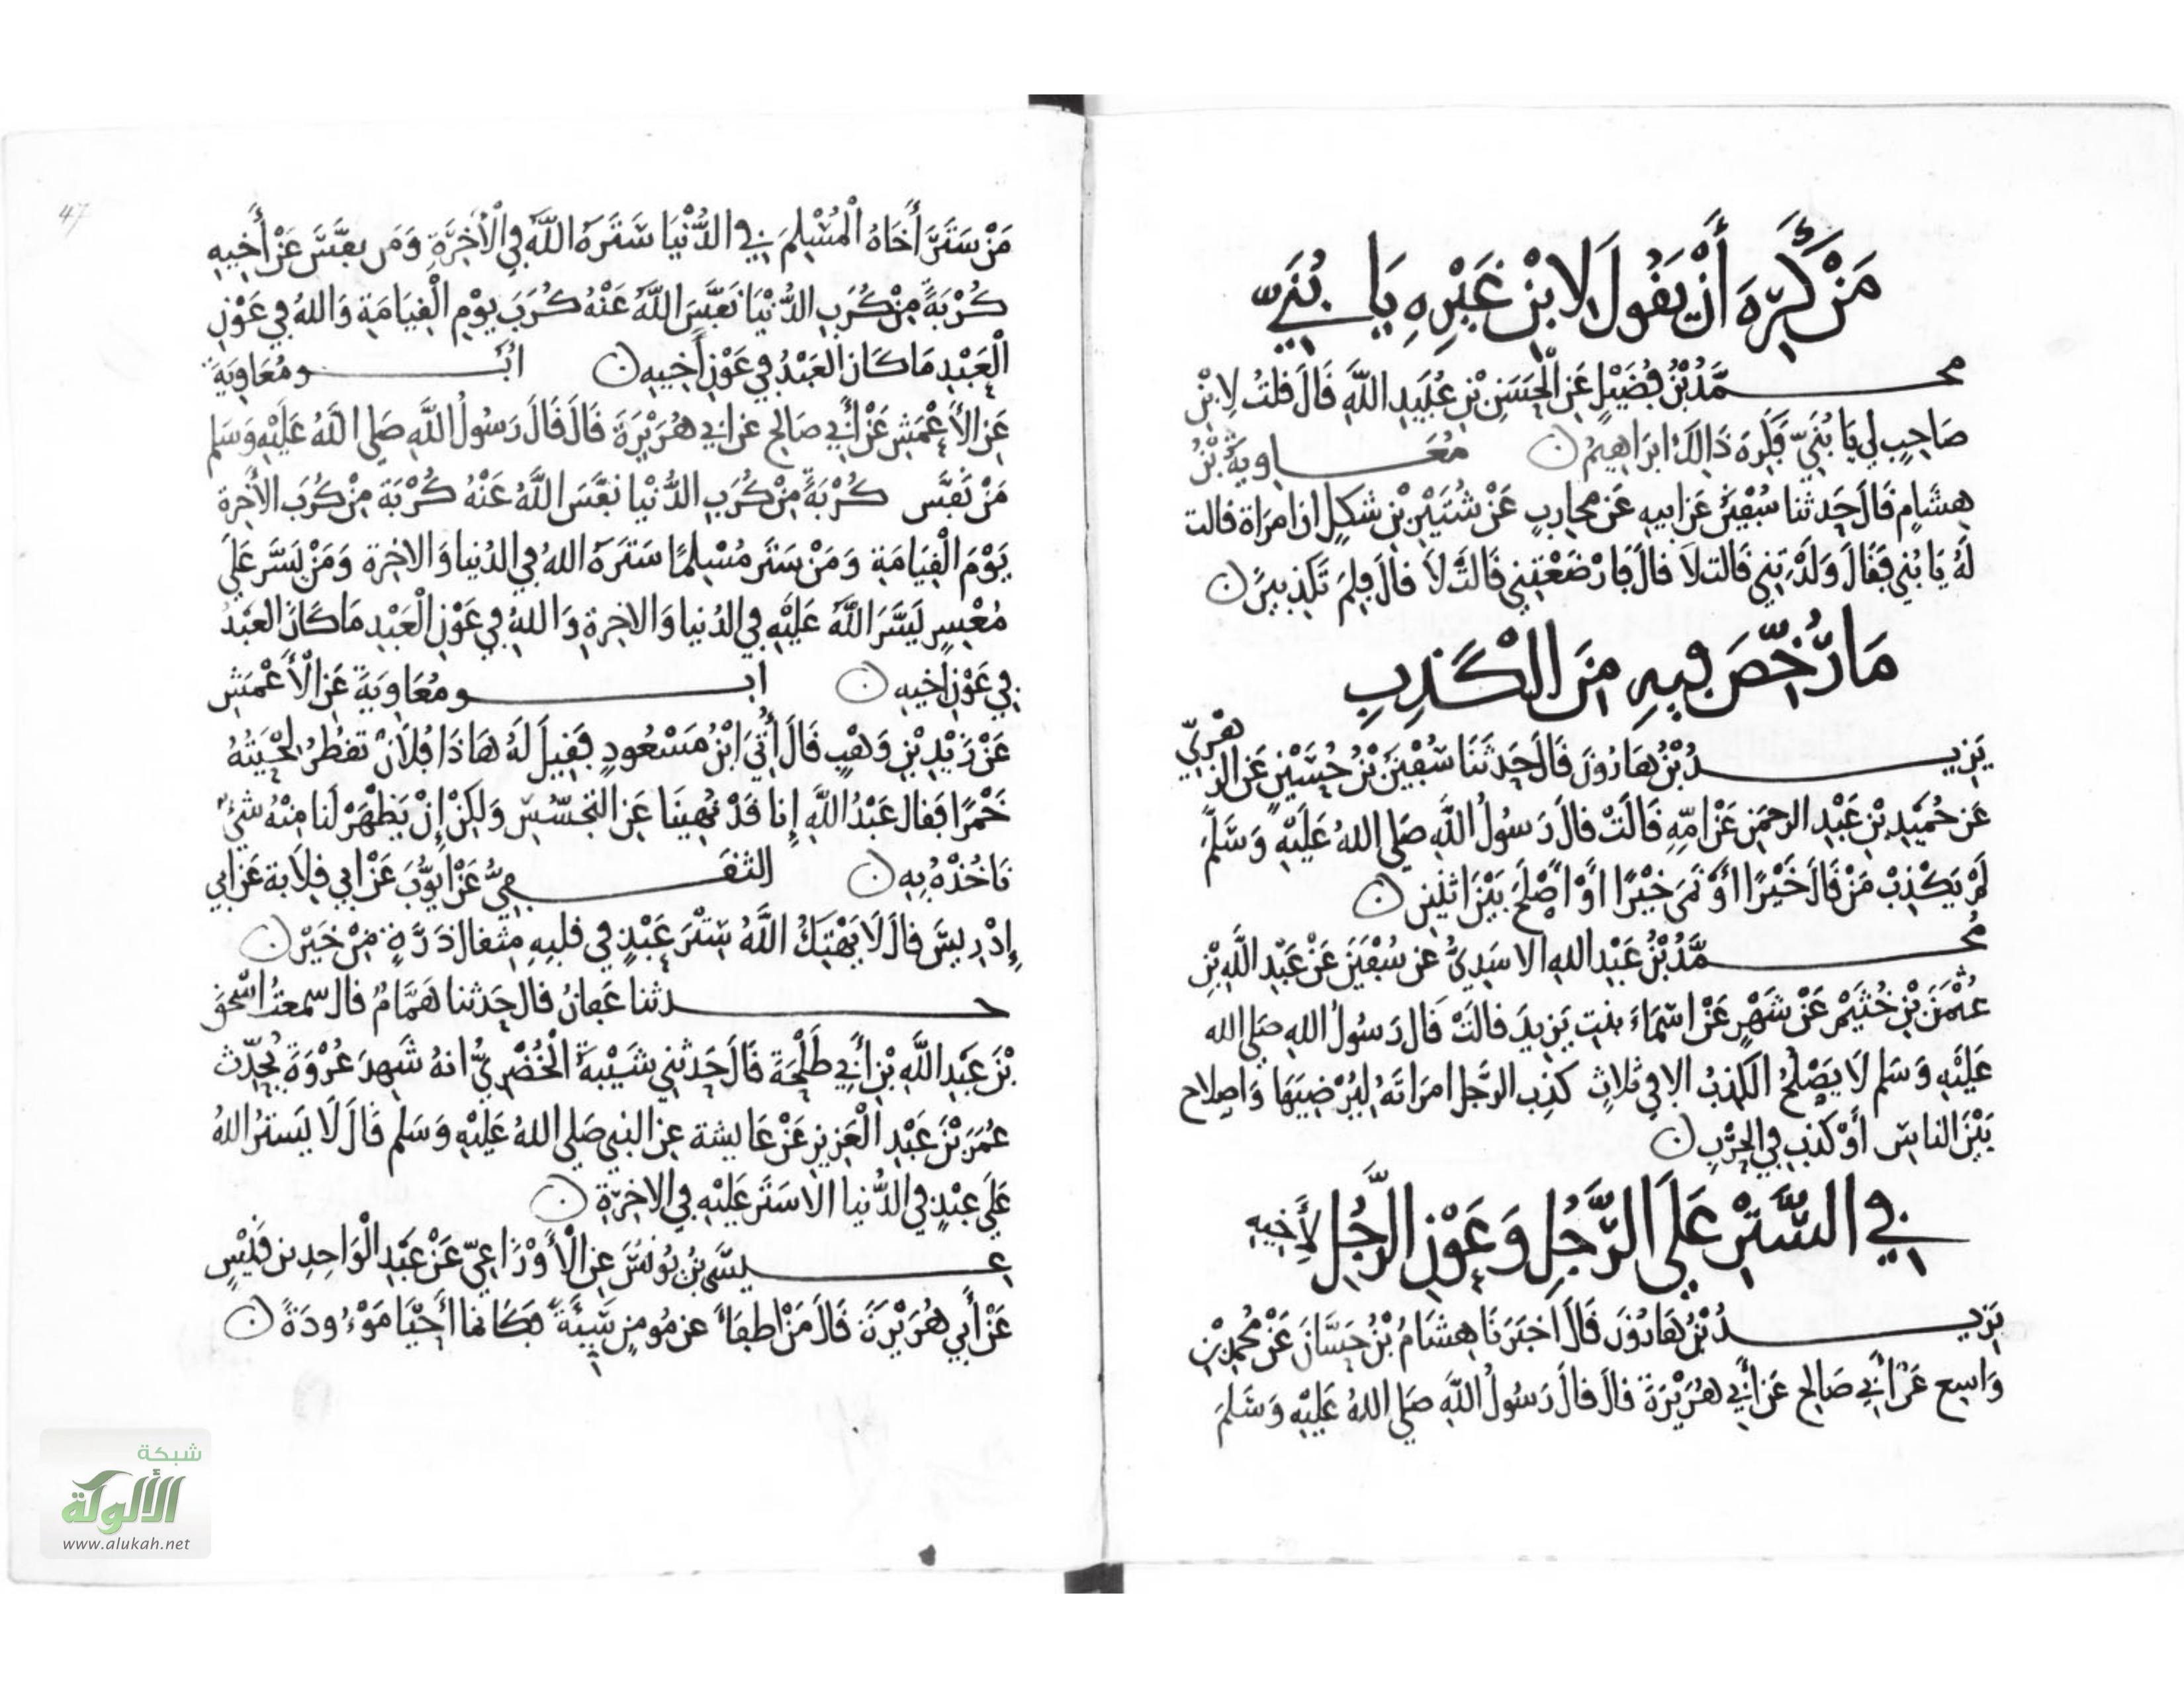 مَنْ كَرِهَ أَنْ يَقُولَ لابْنِ غَيْرِهِ يَا بُنَيّ
محمَّدُ بْنُ فُضَيْلٍ عَنِ الْحَسَنِ بْنِ عُبَيدِ اللَّهِ قَالَ قلتُ لِابْنِ
صَاحِبٍ لِي يَا بُنَيّ فَكَرِهَ ذَالِكَ ابرَاهِيمُ مُعَاوِيَةُ بْنُ
هِشَامٍ قَالَ حَدثنا سُفْيَنُ عَن ابيهِ عَن مُحَارِبٍ عَنْ شُتَيْرِ بْنِ شَكَلٍ ان امرَاة قالت
لَهُ يَا بُنَي فَقَالَ وَلَدْتِنِي قَالت لَا قالَ فَارْضَعْتِنِي قَالتْ لَا قالَ فَلِمَ تَكذِبِينَ
مَا رُخِّصَ فِيهِ مِنَ الْكَذِبِ
يَزِيدُ بْنُ هَارُونَ قَالَ حَدثَنَا سُفْيَنُ بْنُ حُسَيْنٍ عَنِ الزهْرِيِّ
عَن حُمَيْدِ بْنِ عَبْدِ الرحمَنِ عَنْ امِّهِ قَالَتْ قالَ رَسُولُ اللَّهِ صَلى اللهُ عَلَيْهِ وَسَلَّمَ
لَمْ يَكْذِبْ مَنْ قَالَ خَيْرًا اوْ نَمَى خَيْرًا اوْ اصْلَحَ بَيْنَ اثنَينِ
مُحمَّدُ بْنُ عَبْدِ اللهِ الاسَدِيُّ عن سُفْيَنَ عَنْ عَبْدِ اللَّهِ بْنِ
عُثْمَنَ بْنِ خُثَيْمٍ عَنْ شَهْرٍ عَنْ اسْمَاءَ بنتِ يَزِيدَ قالَتْ قَال رَسُولُ اللهِ صَلى الله
عَلَيْهِ وَسَلم لَا يَصْلُحُ الكَذِبُ الا فِي ثلاثٍ كذِب الرَّجل امرَاتَهُ لِيُرْضِيَهَا وَاصِلاح
بَيْنَ الناسِ أَوْ كَذب في الحَرْبِ
فِي السَّتْرِ عَلَى الرَّجُلِ وَعَوْنِ الرَّجُلِ لأَخِيهِ
يَزِيدُ بْنُ هَارُونَ قَالَ اخبَرَنَا هِشَامُ بْنُ حَسَّانَ عَنْ مُحمدِ بْنِ
وَاسِعٍ عَنْ أَبِي صَالحٍ عَن أَبِي هُرَيْرَةَ قالَ قالَ رَسُولُ اللَّهِ صَلى اللهُ عَلَيْهِ وَسَلمَ
47
مَنْ سَتَرَ أَخَاهُ الْمُسْلِمَ فِي الدُّنْيَا سَتَرَهُ اللَّهُ فِي الْآخِرَةِ وَمَن نفَّسَ عَنْ أَخِيهِ
كُرْبَةً مِنْ كُرَبِ الدُّنْيَا نَفَّسَ اللَّهُ عَنْهُ كُرَبَ يوْمِ الْقِيَامَةِ وَاللهُ فِي عَوْنِ
الْعَبْدِ مَا كَانَ العَبْدُ فِي عَوْنِ أَخِيهِ ابُو مُعَاوِيَةَ
عَنِ الأَعْمَشِ عَنْ أَبِي صَالِحٍ عَن ابي هُرَيْرَةَ قَالَ قَالَ رَسُولُ اللَّهِ صَلى اللَّهُ عَلَيْهِ وَسَلم
مَنْ نَفَّسَ كُرْبَةً مِنْ كُرَبِ الدُّنْيَا نفَّسَ اللَّهُ عَنْهُ كُرْبَة مِنْ كُرَب الأَخِرة
يَوْمَ الْقِيَامَةِ وَمَنْ سَتَر مُسْلِمًا سَتَرَهُ اللهُ فِي الدُنيا وَالاخِرة وَمَنْ يَسَّر عَلَى
مُعْسِرٍ يَسَّرَ اللَّهُ عَلَيْهِ فِي الدُنيا وَالاخِرةِ وَاللهُ فِي عَوْنِ الْعَبْدِ مَا كَانَ العَبْدُ
فِي عَوْنِ اخِيهِ ابو مُعَاوِيَةَ عَنِ الْأَعْمَشِ
عَنْ زَيْدِ بْنِ وَهْبٍ قَالَ أُتِيَ ابْنُ مَسْعُودٍ فَقِيلَ لَهُ هَاذَا فُلَانٌ تقطُرُ لِحْيَتُهُ
خَمْرًا فَقال عَبْدُ اللَّهِ إِنا قَدْ نُهِينَا عَنِ التجَسُّسِ وَلكِنْ إِنْ يَظْهَرْ لَنا مِنْهُ شَيْءٌ
نَاخُذْهُ بِهِ الثقَفِيُّ عَنْ ايُّوبَ عَنْ ابي قِلَابة عَن ابي
إِدْرِيسَ قالَ لَا يَهْتِكُ اللَّهُ سِتْرَ عَبْدٍ فِي قلبِهِ مِثقال ذَرَّةٍ مِنْ خَيْرٍ
حدثنا عَفانُ قالَ حَدثنا هَمَّامٌ قال سمعتُ اسْحق
بْنَ عَبْدِ اللَّهِ بْنِ أَبِي طَلْحَةَ قَالَ حَدثني شَيْبَةُ الْخُضْرِيُّ انهُ شَهِدَ عُرْوَةَ يُحَدِّث
عُمَرَ بْنَ عَبْدِ الْعَزِيزِ عَنْ عَايشة عن النبي صَلى اللهُ عَلَيْهِ وَسَلم قَالَ لَا يَستُرُ اللهُ
عَلَى عَبْدٍ فِي الدُّنيا الا سَتَر عَلَيْهِ فِي الاخِرَةِ
عِيسَى بْنُ يُونُسَ عَنِ الْأَوْزَاعِيّ عَنْ عَبْدِ الْوَاحِدِ بن قَيْسٍ
عَنْ أَبِي هُرَيْرَةَ قَالَ مَنْ اطفَأَ عن مُومِنٍ سَيِّئَةً فكَانما أَحْيَا مَوْءُودَةً
شبكة
الألوكة
www.alukah.net